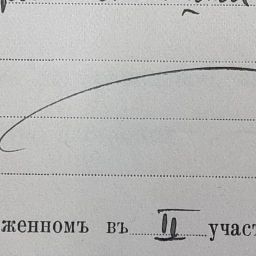 женномъ въ II участ